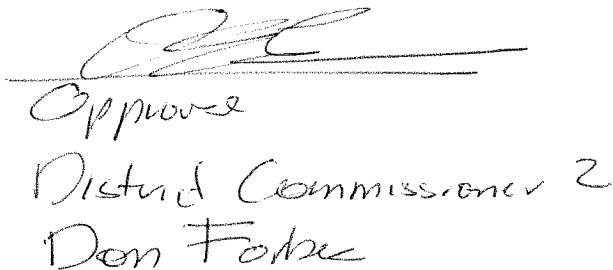 Approve
District Commissioner 2
Don Forbes